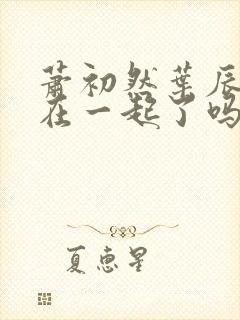 萧初然葉辰
在一起了吗
夏惠星